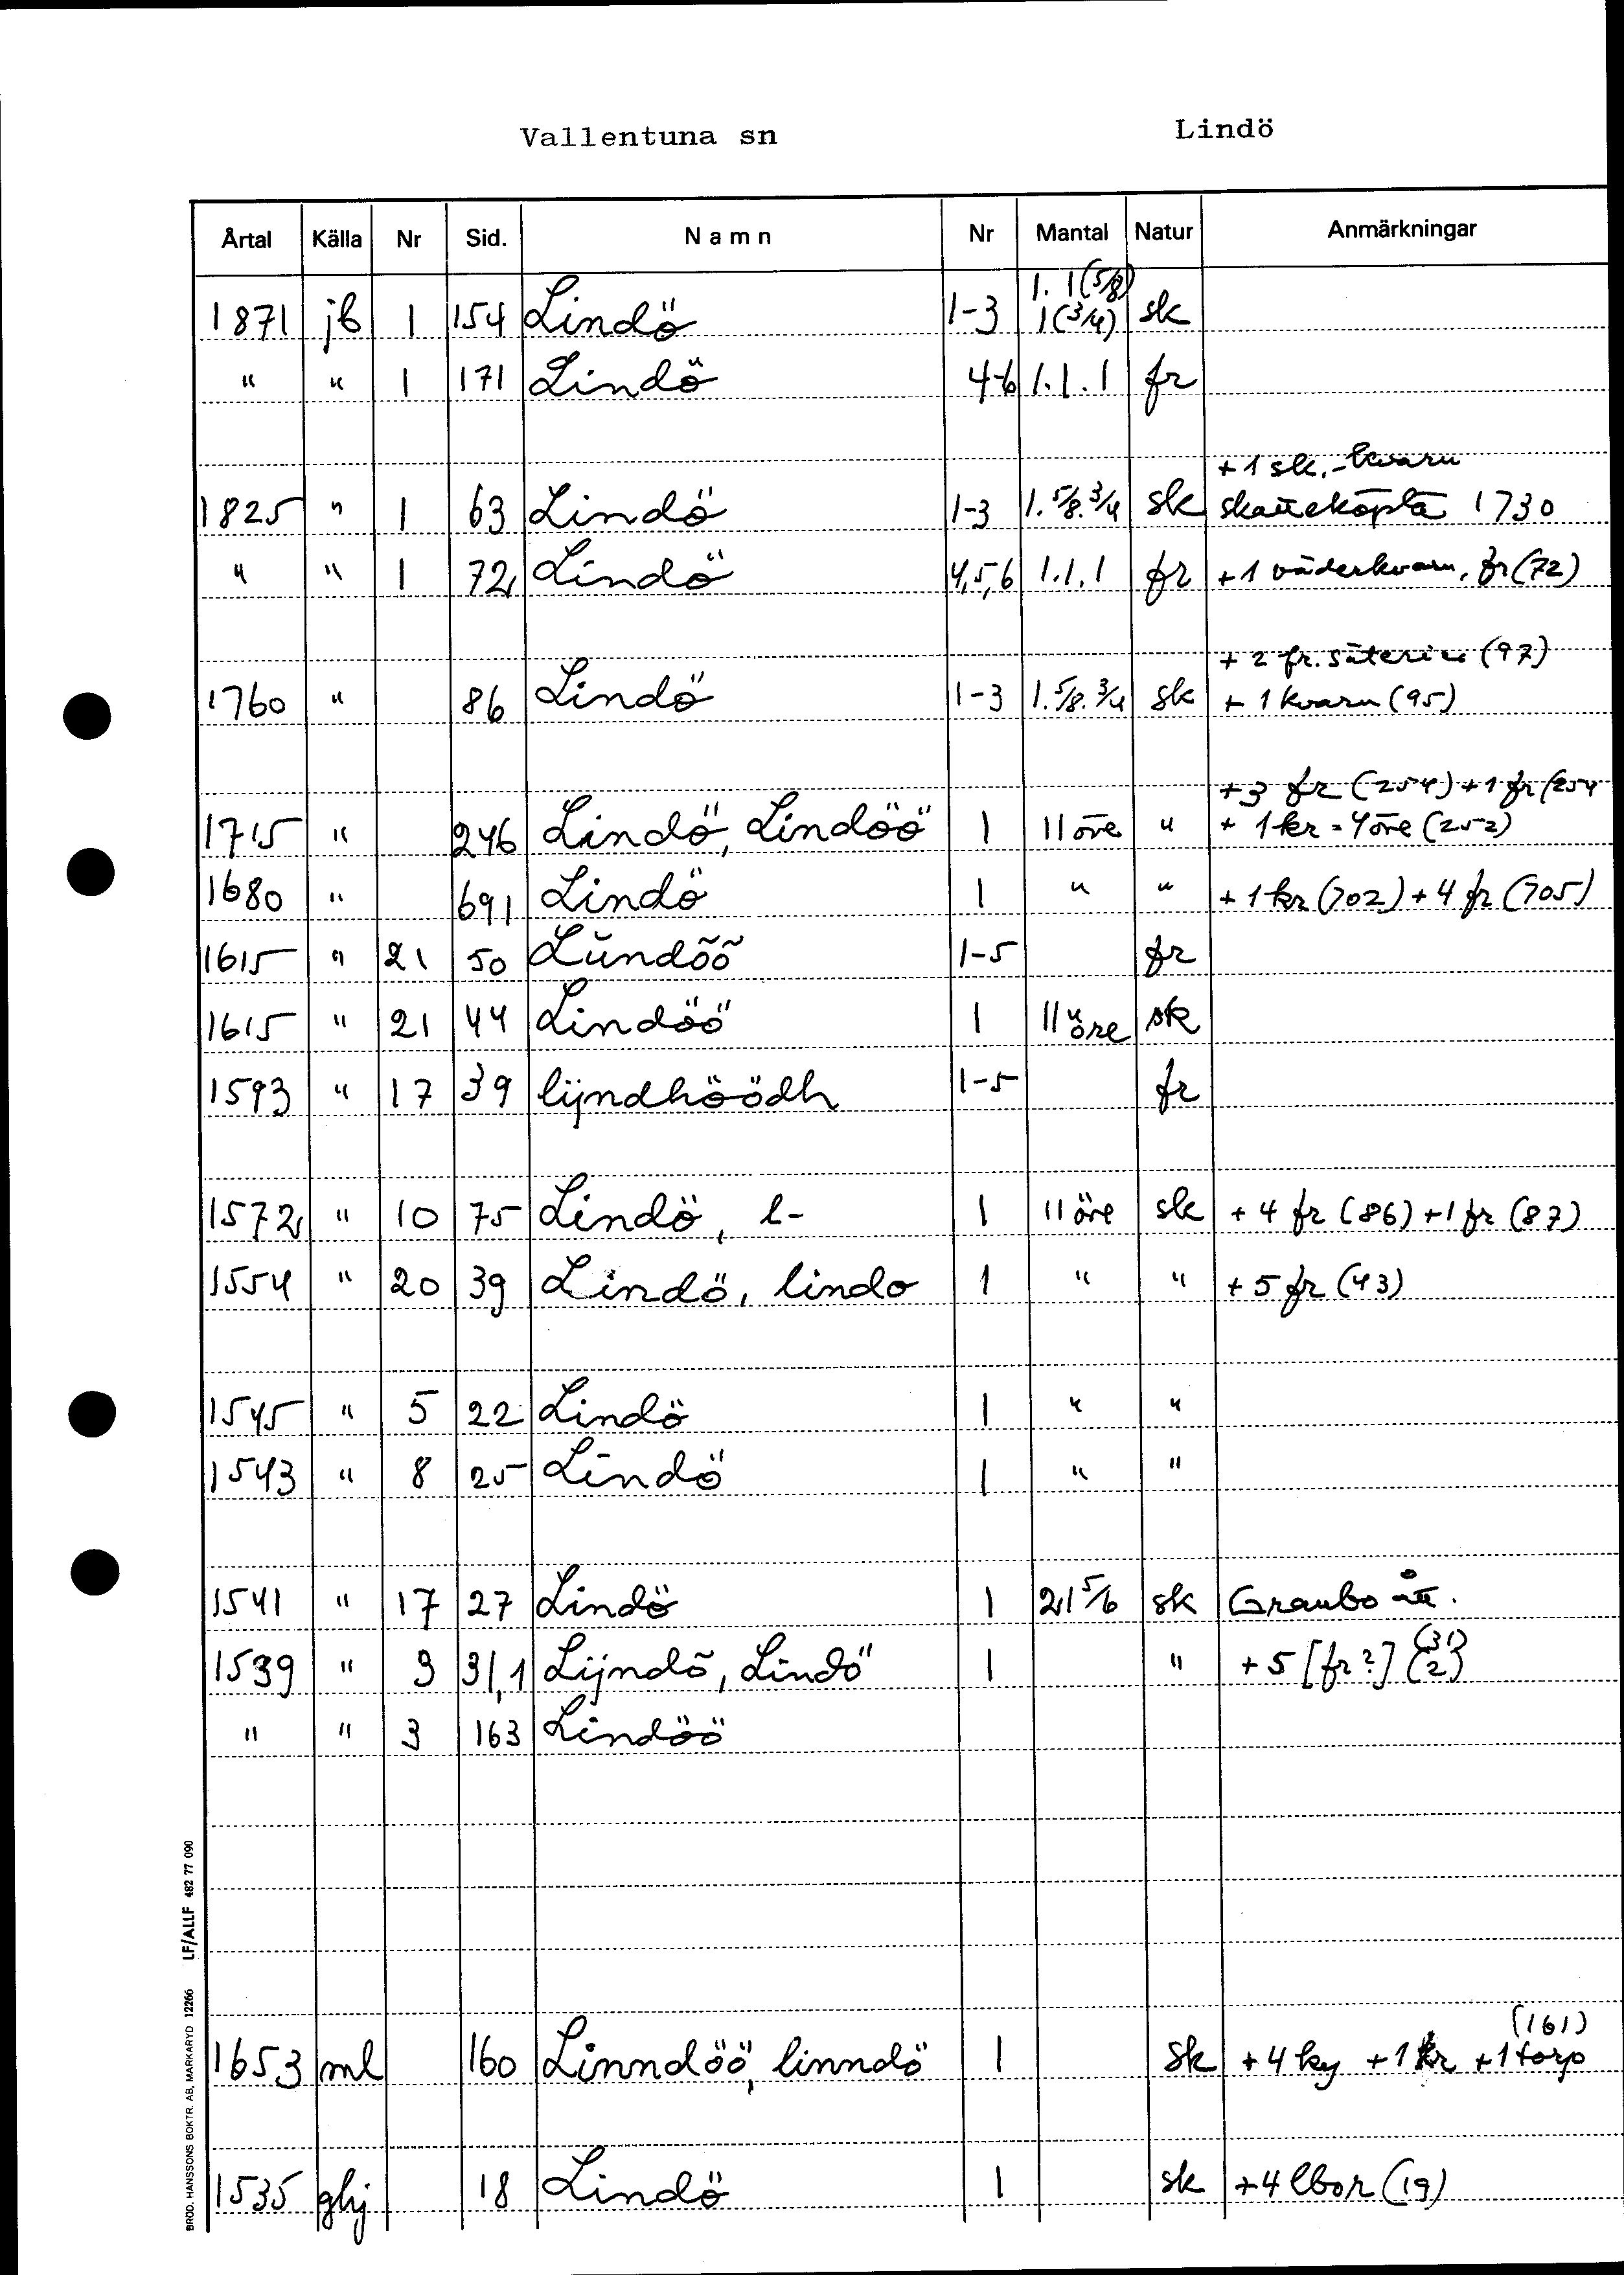 Vallentuna sn Lindö
Årtal Källa Nr Sid. Namn Nr Mantal Natur Anmärkningar
1. 1(5/8)
1871 jb 1 154 Lindö 1-3 1(3/4) sk
" " 1 171 Lindö 4-6 1.1.1 fr
+ 1 sk.-kvarn
1825 " 1 63 Lindö 1-3 1.5/8.3/4 sk skatteköpta 1730
" " 1 72 Lindö 4,5,6 1.1.1 fr + 1 väderkvarn, fr (72)
+ 2 fr. säterier (97)
1760 " 86 Lindö 1-3 1.5/8.3/4 sk + 1 kvarn (95)
+3 fr (254) + 1 fr (254
1715 " 246 Lindö, Lindöö 1 11 öre " + 1 kr = 4 öre (252)
1680 " 691 Lindö 1 " " + 1 kr (702) + 4 fr (705)
1615 " 21 50 Lŭndõõ 1-5 fr
1615 " 21 44 Lindöö 1 11 öre sk
1593 " 17 39 lijndhöödh 1-5 fr
1572 " 10 75 Lindö, l- 1 11 öre sk + 4 fr (86) + 1 fr (87)
1554 " 20 39 Lindö, lindo 1 " " + 5 fr (43)
1545 " 5 22 Lindö 1 " "
1543 " 8 25 Lindö 1 " "
1541 " 17 27 Lindö 1 21 5/6 sk Graubo ått.
(31)
1539 " 3 31,1 Lijndõ, Lindö 1 " + 5 [fr?] (2)
" " 3 163 Lindöö
(161)
1653 ml 160 Linndöö, linndö 1 sk + 4 ky + 1 kr + 1 torp
1535 ghj 18 Lindö 1 sk + 4 lbor (19)
BRÖD. HANSSONS BOKTR. AB, MARKARYD 12266 LF/ALLF 482 77 090